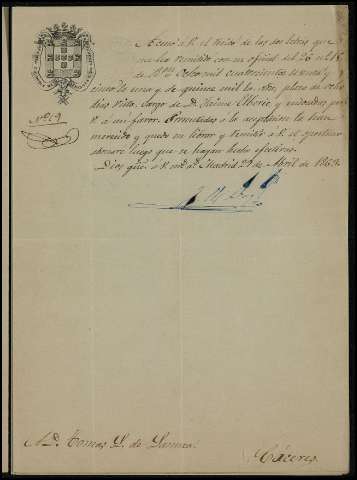 Acuso á V. el recibo de las dos letras que
me ha remitido con su oficial del 26 al
de ocho mil cuatrocientos sesenta y
cinco la una y de quince mil la otra, plazo de ocho
dias vista, cargo de D. Jaime y endosadas por
V. á mi favor. Remitidas á la aceptacion la han
merecido y quedo en librar y remitir á V. el oportuno
abonaré luego que se hayan hecho efectivas.
Nº 19
Dios gue. á V. ms. as. Madrid 29 de Abril de 1863.
Sr. D. Tomas L. de
Cáceres